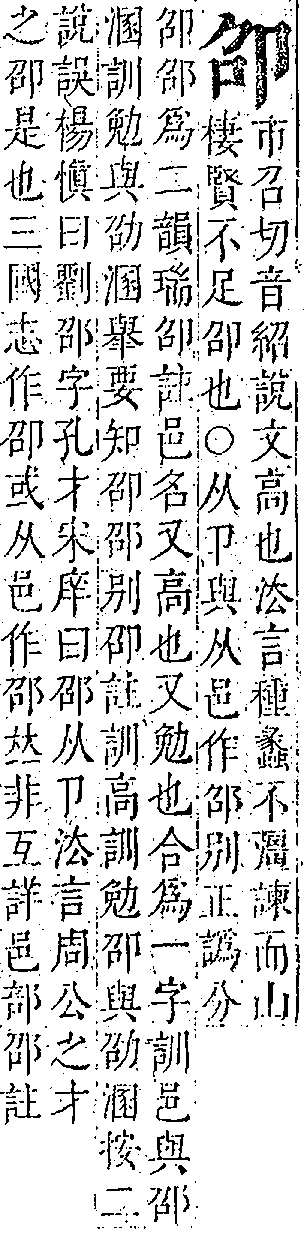 卲
市召切音紹說文高也法言種蠡不彊諫而山
棲賢不足卲也○从卩與从邑作邵别正譌分
卲邵爲二韻瑞卲註邑名又高也又勉也合爲一字訓邑與邵
溷訓勉與劭溷舉要知卲邵别卲註訓高訓勉卲與劭溷按二
說誤楊愼曰劉卲字孔才宋庠曰卲从卩法言周公之才
之卲是也三國志作卲或从邑作邵𠀤非互詳邑部邵註